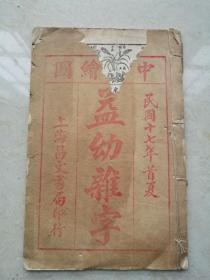 中繪圖
民國十七年首夏
益幼雜字
上海昌文書局印行